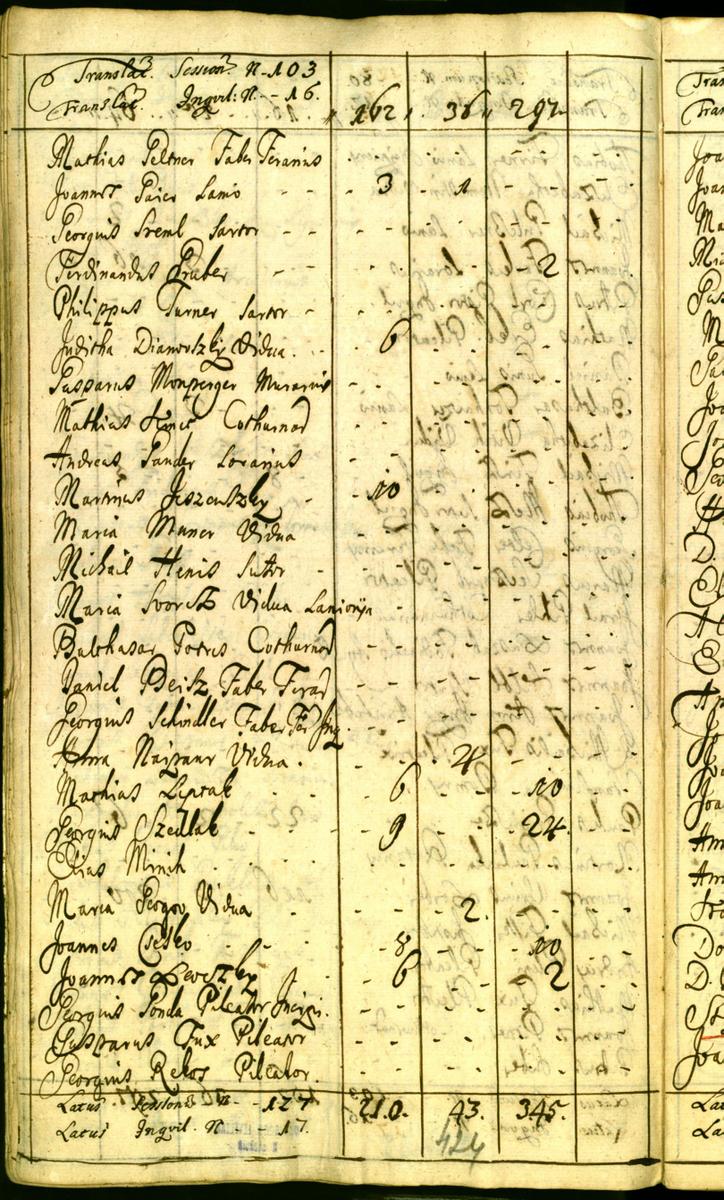 Translat. Session. N - 103
Translat. Inqvil: N. - 16. 162 36 297
Mathias Peltner Faber Ferarius
Joannes Paier Lanio - - 3 - 1 - - -
Georgius Sreml Sartor - - - -
Ferdinandus Gruber - - - - 2 -
Philippus Turner Sartor - -
Juditha Vidua - - 6 - - -
Gasparus Monperger Murarius
Mathias Cothurnar
Andreas Sander Lorarius
Martinus Jeszenszky - 10 - - -
Maria Muner Vidua
Michäil Henis Sutor - - -
Maria Svorcz Vidua Lanionja
Balthasar Potres Cothurnar
Daniel Beisz Faber Ferar
Georgius Schindler Faber Fer Inq.
Anna Vidua - - 24 - -
Mathias Liptak - - 6 - - 10 -
Georgius Szedlak - - - 9 - - 24 -
Elias Minih - - -
Maria Georgov Vidua - - 2. - -
Joannes Csesko - - - 8 - - 10 -
Joannes - - 6 - 2 -
Georgius Ponda Pileator Incipi.
Gasparus Fux Pileator
Georgius Rekos Pileator.
Latus Session N. - 127 210. 43. 345.
Latus Inqvil. N - 17.
424